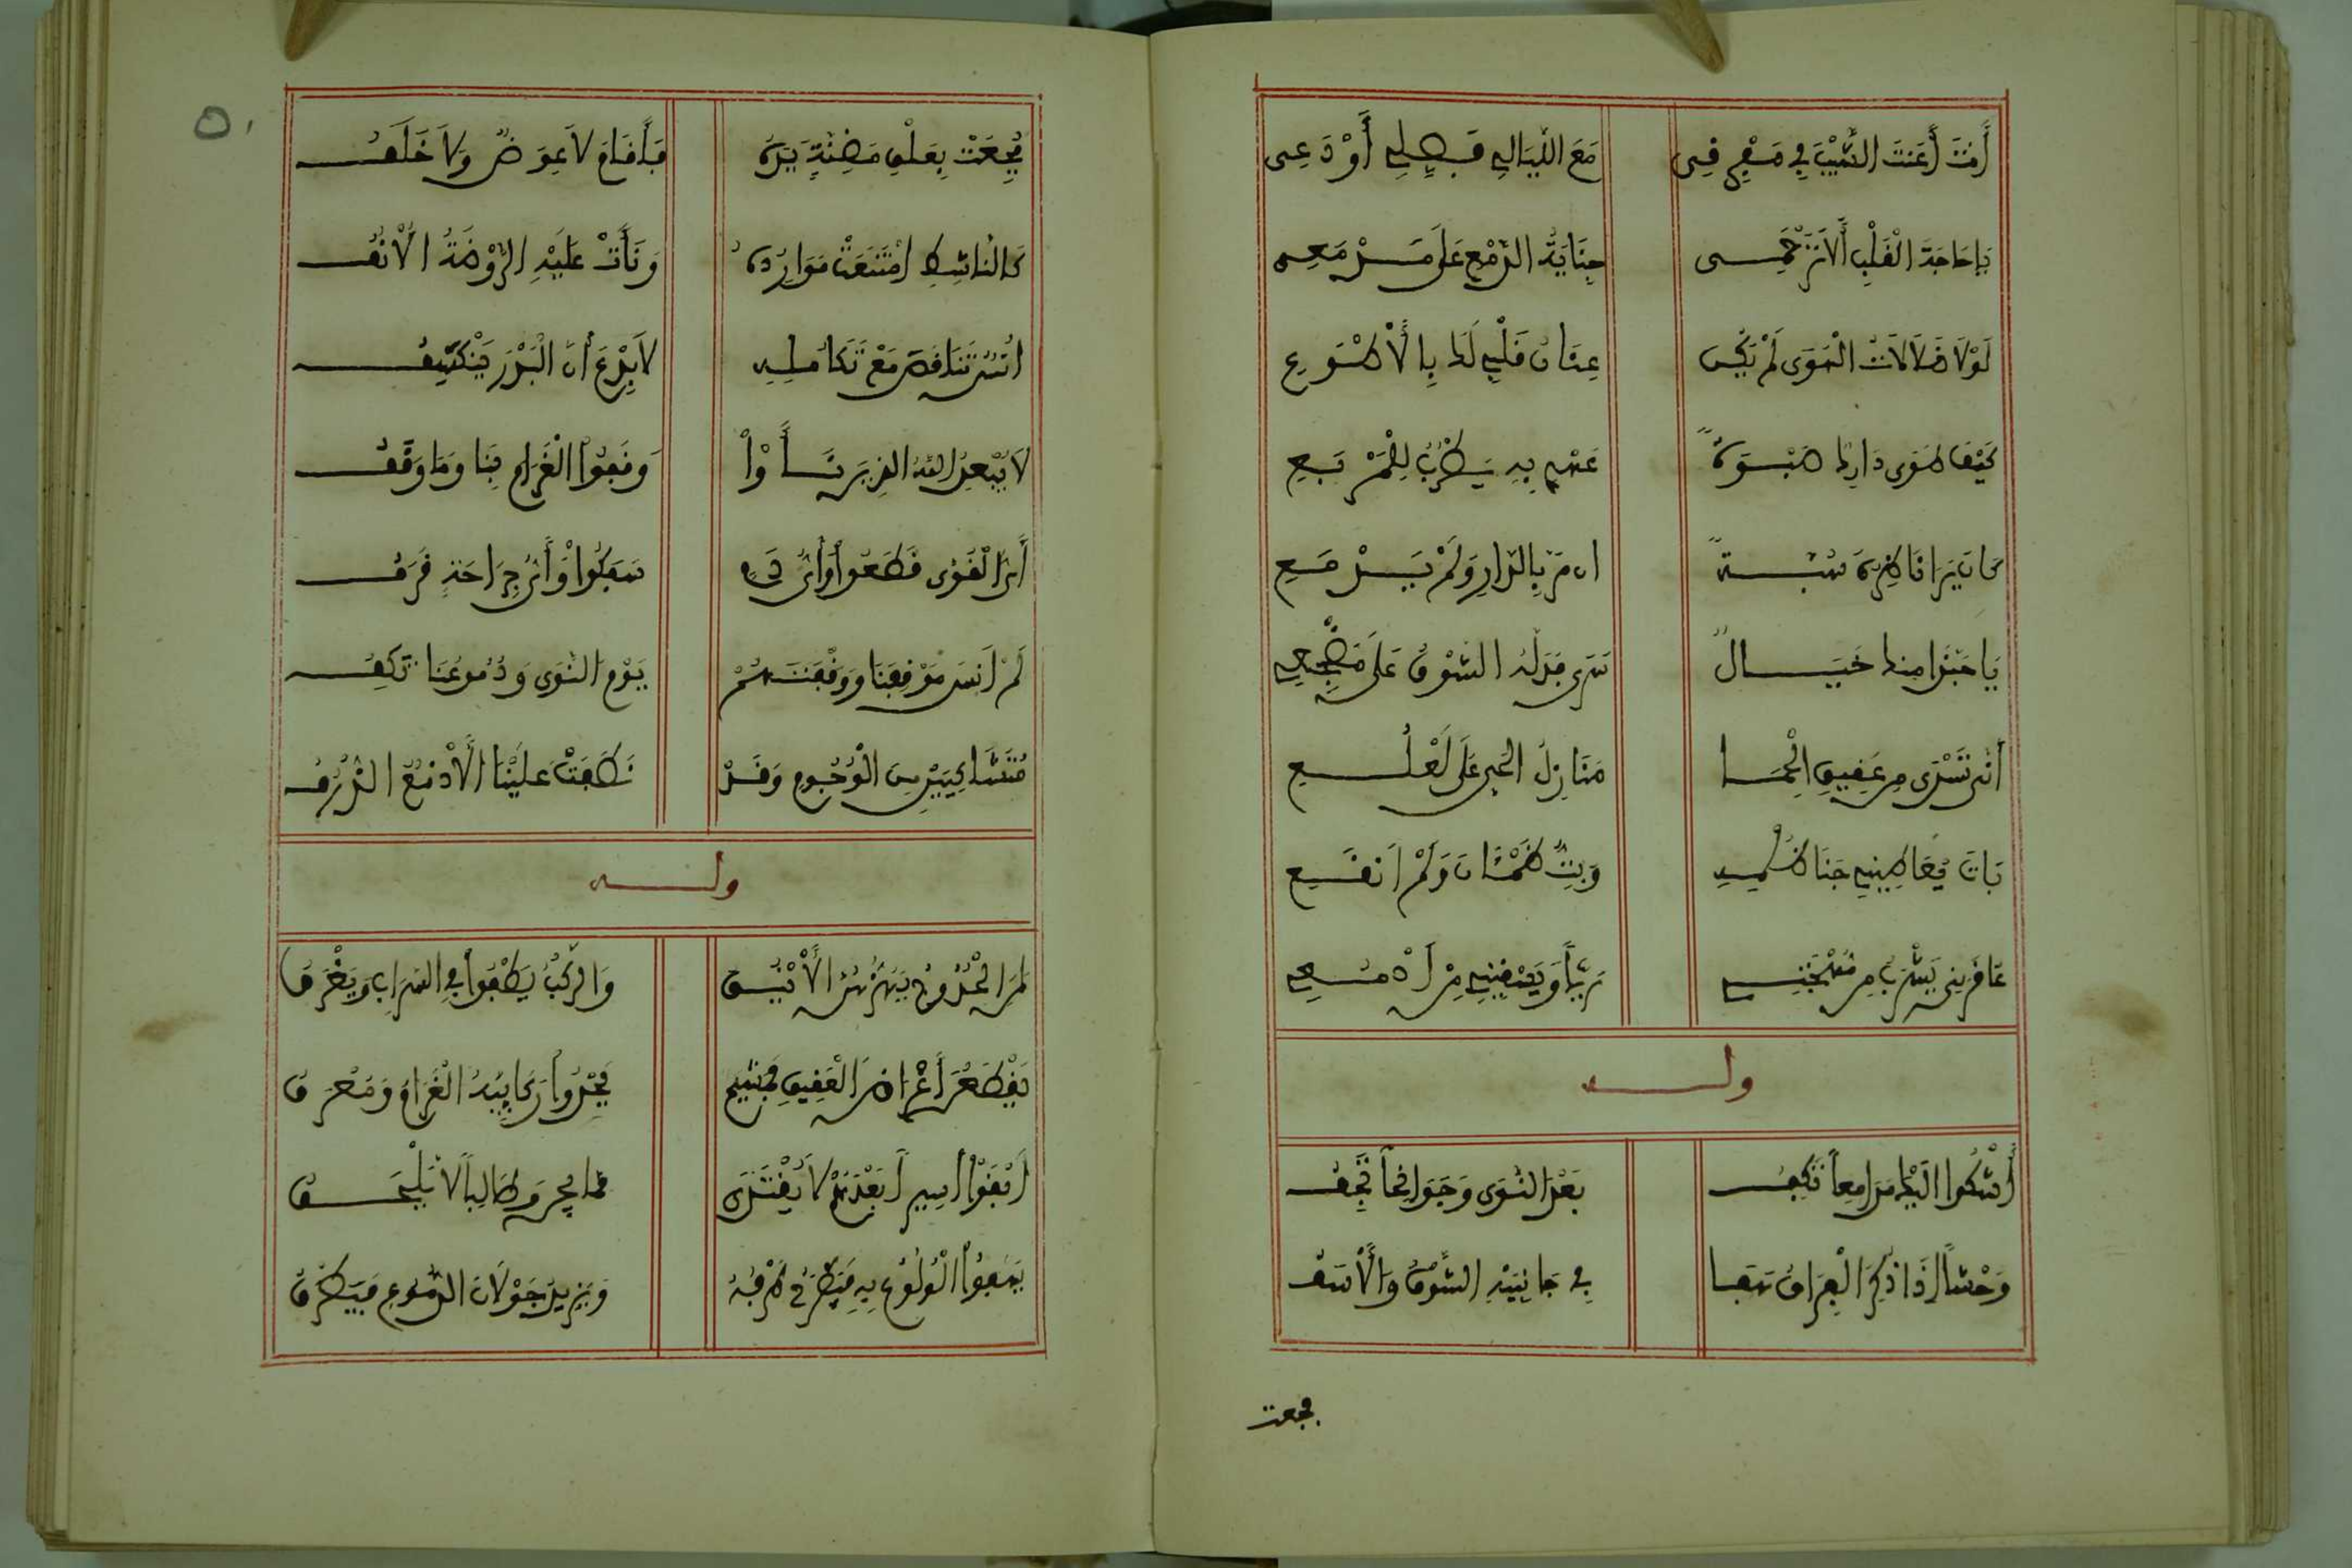 أَنْتَ أَعَنْتَ الشَّيْبَ فِي مَفْرِقِى مَعَ اللَّيَالِي فَصِلِي أَوْ دَعِى
يَا حَاجَةَ الْقَلْبِ أَلَا تَرْحَمِى جِنَايَةَ الدَّمْعِ عَلَى مَدْمَعِى
لَوْلَا ضَلَالَاتُ الْهَوَى لَمْ يَكُنْ عِنَانُ قَلْبِي لَكِ بِالْأَطْوَعِ
كَيْفَ دَارِكِ صَبْوَةً
ان مَرَّ بِالدَّارِ وَلَمْ يَدْمَعِ
يَا حَبَّذَا مِنْكِ خَيَالٌ سَرَى فَدَلَّهُ الشَّوْقُ عَلَى مَضْجَعِي
أَنَّى تَسَدَّى مِن عَقِيقِ الْحِمَا مَنَازِلَ الْحَيِّ عَلَى لَعْلَعِ
بَاتَ يُعَاطِينِي جَنَا ظَلْمِهِ وَبِتُّ ظَمْئَانَ وَلَمْ أَنْقَعِ
عَاقَرَنِى يَشْرَبُ مِن مُهْجَتِي رِيّاً وَيَسْقِينِي مِنْ أَدْمُعِي
ولــه
أَشْكُوا الَيْكَ مَدَامِعاً تَكِفُ بَعْدَ النَّوَى وَجَوَانِحاً تَجِفُ
وَحْشاً إِذَا ذُكِرَ الْفِرَاقُ هَفَا فِي جَانِبَيْهِ الشَّوْقُ وَالْأَسَفُ
فجعت
٥٠
فُجِعَتْ بِعِلْقِ مَضِنَّةٍ يَدُهُ فَأَقَامَ لَا عِوَضٌ وَلَا خَلَفُ
كَالنَّاشِطِ امْتَنَعَتْ مَوَارِدُهُ وَنَأَتْ عَلَيْهِ الرَّوْضَةُ الْأُنُفُ
تَنَاقَصَ مَعْ تَكَامُلِهِ لَا بِدْعَ أَنَّ الْبَدْرَ يَنْكَسِفُ
لَا يُبْعِدُ اللَّهُ الذِينَ نَأَوْا وَقَفُوا الْغَرَامَ بِنَا وَمَا وَقَفُ
أَيَّ الْقُوَى قَطَعُوا وَأَيَّ دَمٍ سَفَكُوا وَأَيَّ جِرَاحَةٍ قَرَفُ
لَمْ أَنْسَ مَوْقِفَنَا وَوَقْفَتَهُمْ يَوْمَ النَّوَى وَدُمُوعُنَا تَكِفُ
مُتَشَاكِيَيْنِ مِنَ الْوُجُومِ وَقَدْ نَطَقَتْ عَلَيْنَا الْأَدْمُعُ الذُّرُفُ
ولــه
لِمَنِ الْحُدُوجُ تَهُزُّهُنَّ الْأَنْيُقُ وَالرَّكْبُ يَطْفُوا فِي السَّرَابِ وَيَغْرَقُ
يَقْطَعْنَ أَعْرَاضَ الْعَقِيقِ فَمُشْئِمٌ يَحْدُوا رَكَائِبَهُ الْغَرَامُ وَمُعْرِقُ
أَبْقَوْا أَسِيراً بَعْدَهُمْ لَا يُفْتَدَى مِمَّا يَجِنُّ وَطَالِباً لَا يَلْحَقُ
يَهْفُوا الْوُلُوعُ بِهِ فَيَطْرِفُ طَرْفُهُ وَيَزِيدُ جَوْلَانُ الدُّمُوعِ فَيَطْرَقُ